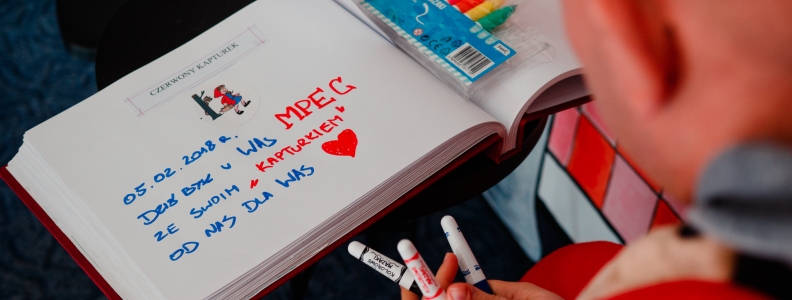 CZERWONY KAPTUREK
05.02.2018 R.
DZIŚ BYŁ U WAS MPEC
ZE SWOIM „KAPTURKIEM”
OD NAS DLA WAS
KOLOROWE
MAZAKI